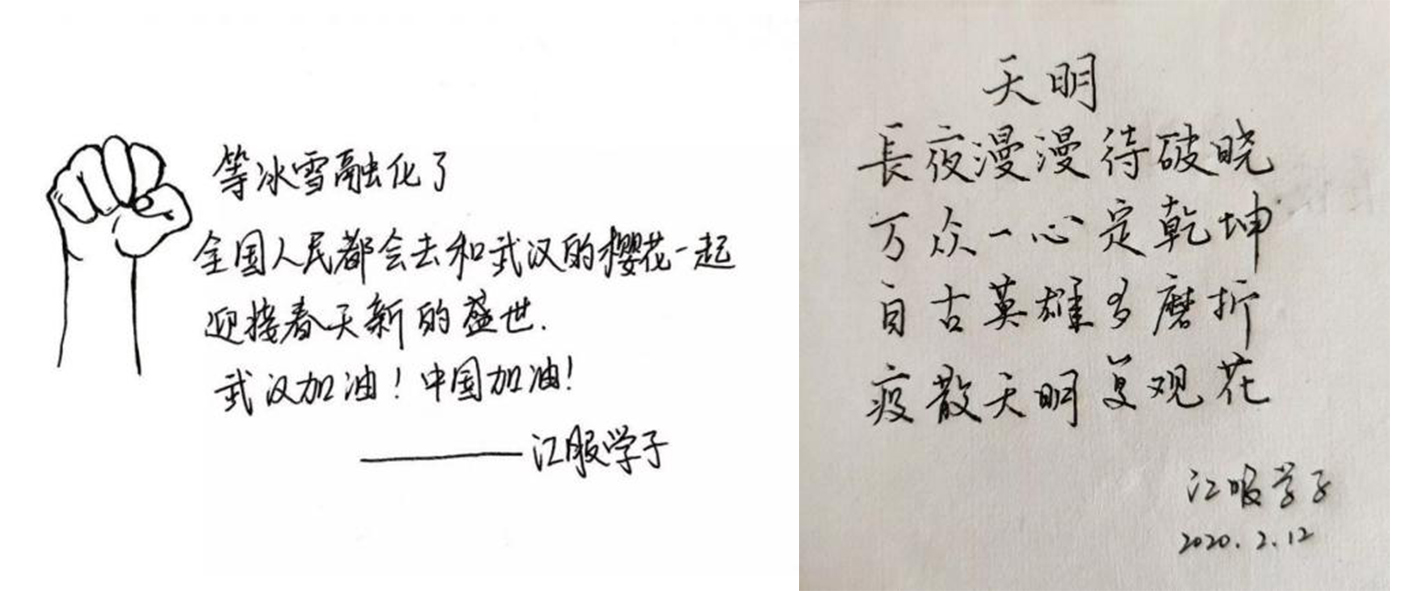 等冰雪融化了
全国人民都会去和武汉的樱花一起
迎接春天新的盛世.
武汉加油！中国加油！
——江服学子
天明
長夜漫漫待破晓
万众一心定乾坤
自古英雄多磨折
疫散天明复观花
江服学子
2020.2.12